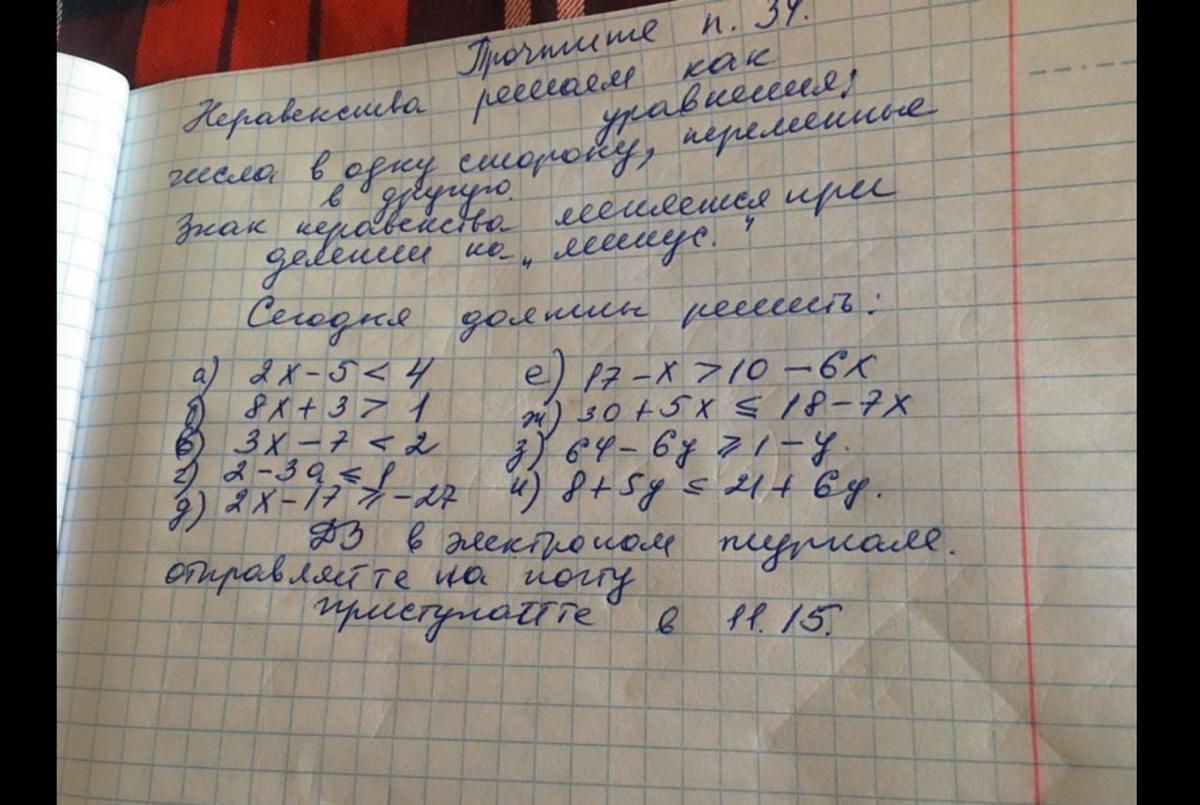 Прочтите п. 34.
Неравенства решаем как
уравнения;
числа в одну сторону, переменные
в другую.
Знак неравенства меняется при
делении на „минус."
Сегодня должны решить:
а) 2x-5<4
б) 8x+3>1
в) 3x-7<2
г) 2-3a≤1
д) 2x-17⩾-27
е) 17-x>10-6x
ж) 30+5x≤18-7x
з) 64-6y⩾1-y.
и) 8+5y≤21+6y.
ДЗ в электроном журнале.
отправляйте на почту
приступайте в 11.15.